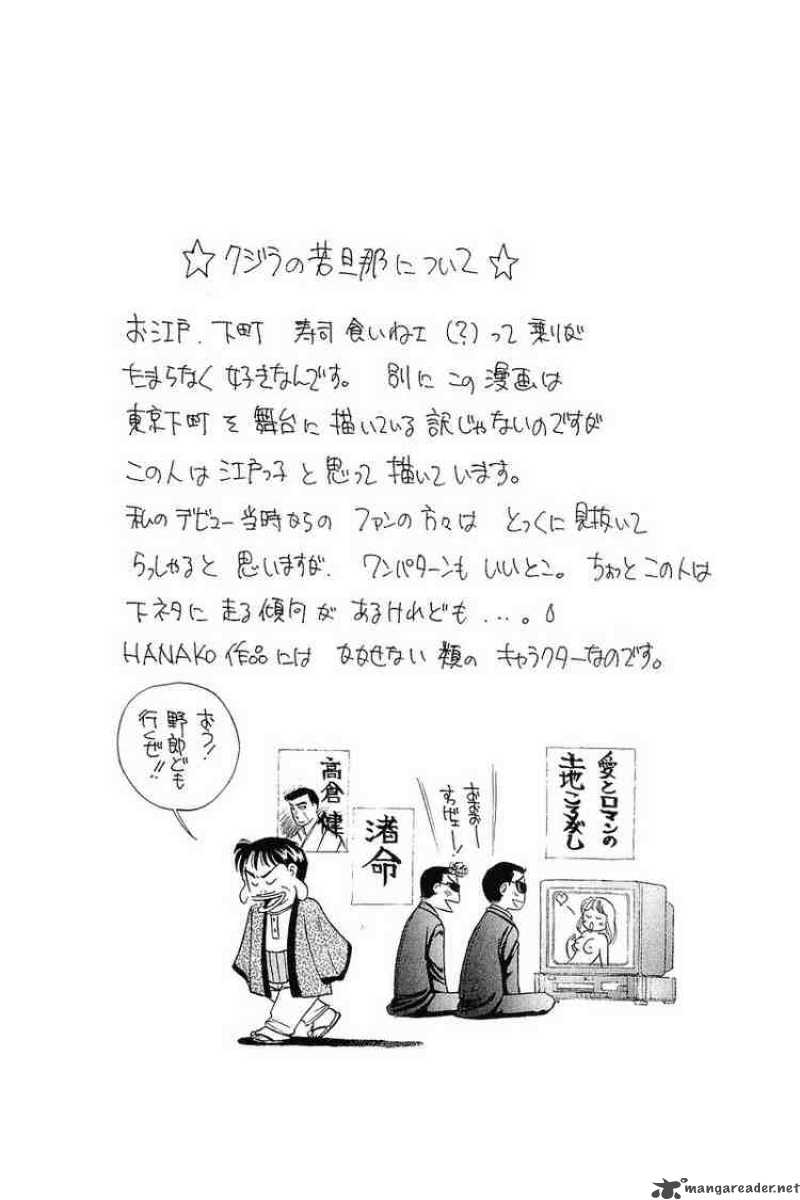 ☆クジラの若旦那について☆
お江戸、下町 寿司食いねェ(?)って乗りが
たまらなく好きなんです。別にこの漫画は
東京下町を舞台に描いている訳じゃないのですが
この人は江戸っ子と思って描いています。
私のデビュー当時からのファンの方々はとっくに見抜いて
らっしゃると思いますが、ワンパターンもいいとこ。ちょっとこの人は
下ネタに走る傾向があるけれども...。
HANAKO作品にはかかせない類のキャラクターなのです。
おう!
野郎ども
行くぜ!!
高倉健
渚命
おおおー
すっげェー!
愛とロマンの
土地ころがし
mangareader.net